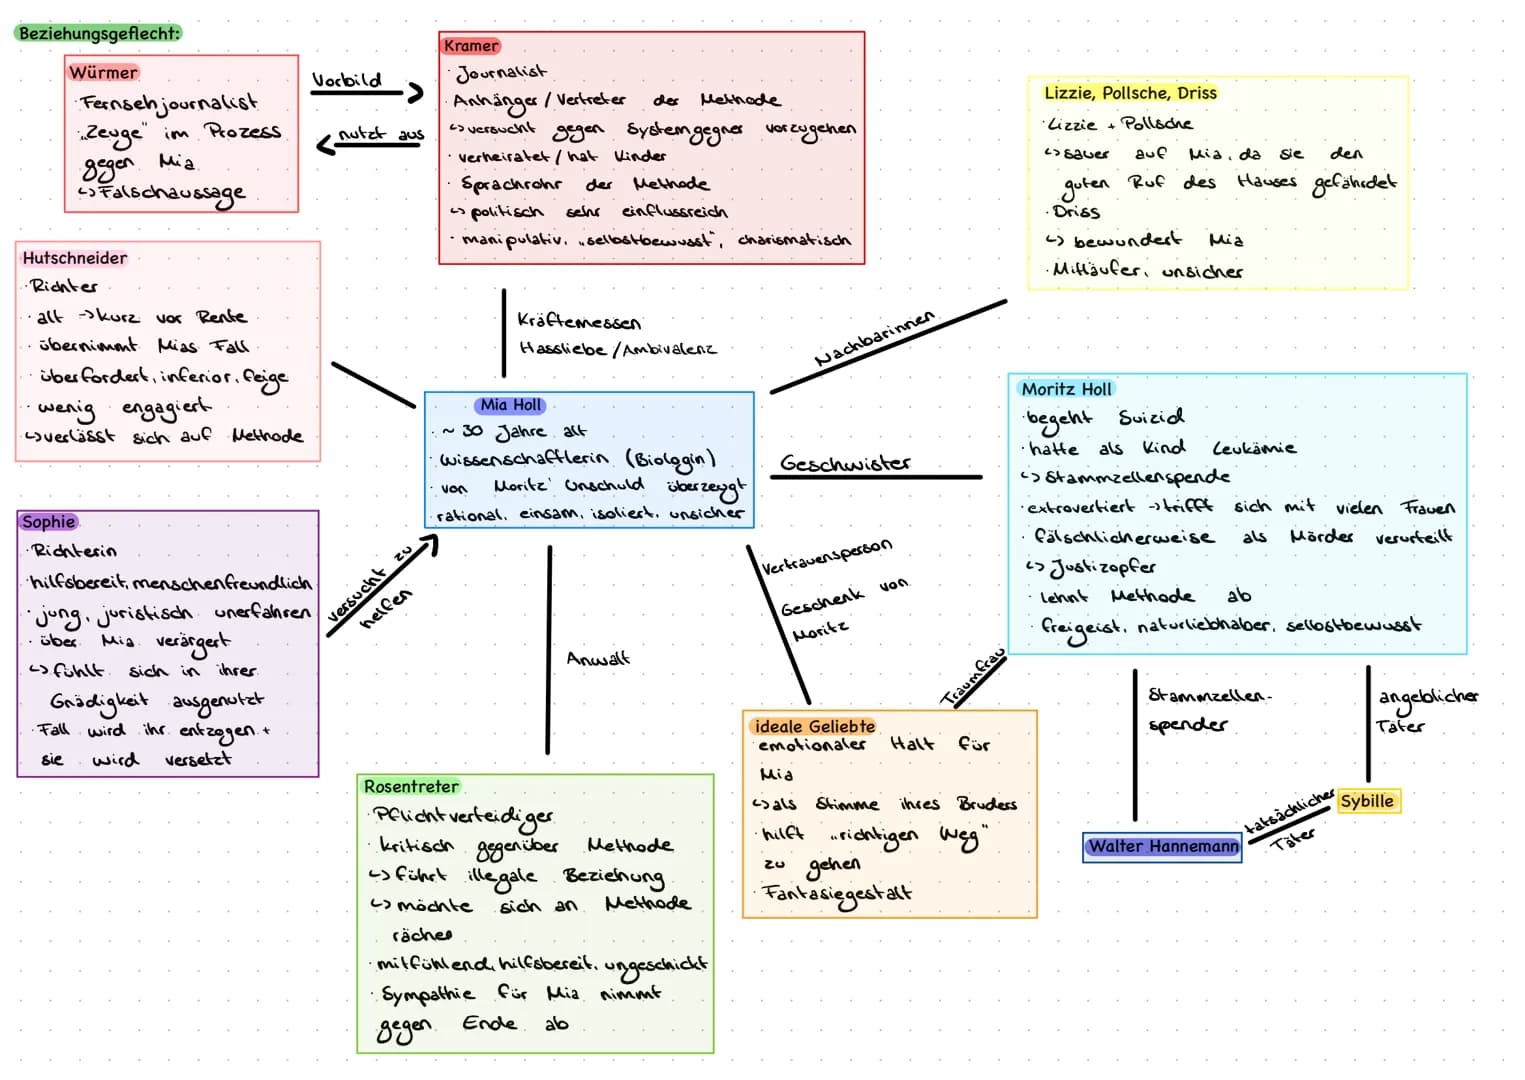 Beziehungsgeflecht:
Würmer
· Fernsehjournalist
· „Zeuge" im Prozess
gegen Mia
↳ Falschaussage
Vorbild
nutzt aus
Kramer
· Journalist
· Anhänger / Vertreter der Methode
↳ versucht gegen Systemgegner vorzugehen
· verheiratet / hat Kinder
· Sprachrohr der Methode
↳ politisch sehr einflussreich
· manipulativ, „selbstbewusst", charismatisch
Lizzie, Pollsche, Driss
· Lizzie + Pollsche
↳ sauer auf Mia, da sie den
guten Ruf des Hauses gefährdet
· Driss
↳ bewundert Mia
· Mitläufer, unsicher
Hutschneider
· Richter
· alt → kurz vor Rente
· übernimmt Mias Fall
· überfordert, inferior, feige
· wenig engagiert
↳ verlässt sich auf Methode
Kräftemessen
Hassliebe / Ambivalenz
Nachbarinnen
Mia Holl
· ~ 30 Jahre alt
· Wissenschaftlerin (Biologin)
· von Moritz' Unschuld überzeugt
· rational, einsam, isoliert, unsicher
Geschwister
Moritz Holl
· begeht Suizid
· hatte als Kind Leukämie
↳ Stammzellenspende
· extrovertiert → trifft sich mit vielen Frauen
· fälschlicherweise als Mörder verurteilt
↳ Justizopfer
· lehnt Methode ab
· freigeist, naturliebhaber, selbstbewusst
Sophie
· Richterin
· hilfsbereit, menschenfreundlich
· jung, juristisch unerfahren
· über Mia verärgert
↳ fühlt sich in ihrer
Gnädigkeit ausgenutzt
· Fall wird ihr entzogen +
sie wird versetzt
versucht zu
helfen
Anwalt
Vertrauensperson
Geschenk von
Moritz
Traumfrau
Rosentreter
· Pflichtverteidiger
· kritisch gegenüber Methode
↳ führt illegale Beziehung
↳ möchte sich an Methode
rächen
· mitfühlend, hilfsbereit, ungeschickt
· Sympathie für Mia nimmt
gegen Ende ab
ideale Geliebte
· emotionaler Halt für
Mia
↳ als Stimme ihres Bruders
· hilft „richtigen Weg"
zu gehen
· Fantasiegestalt
Stammzellen-
spender
angeblicher
Täter
Sybille
tatsächlicher
Täter
Walter Hannemann